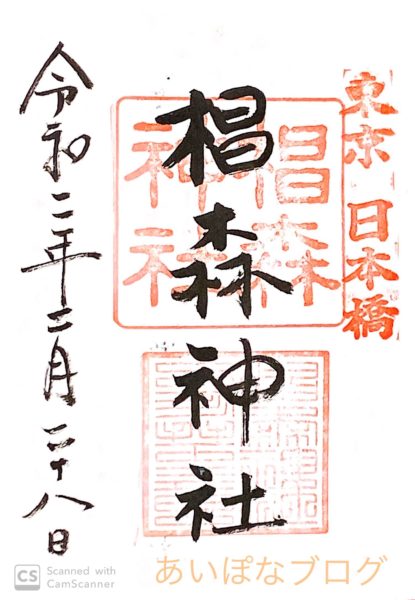 東京 日本橋
椙森神社
椙森
神社
令和二年二月二十八日
CS Scanned with
CamScanner
あいぽなブログ